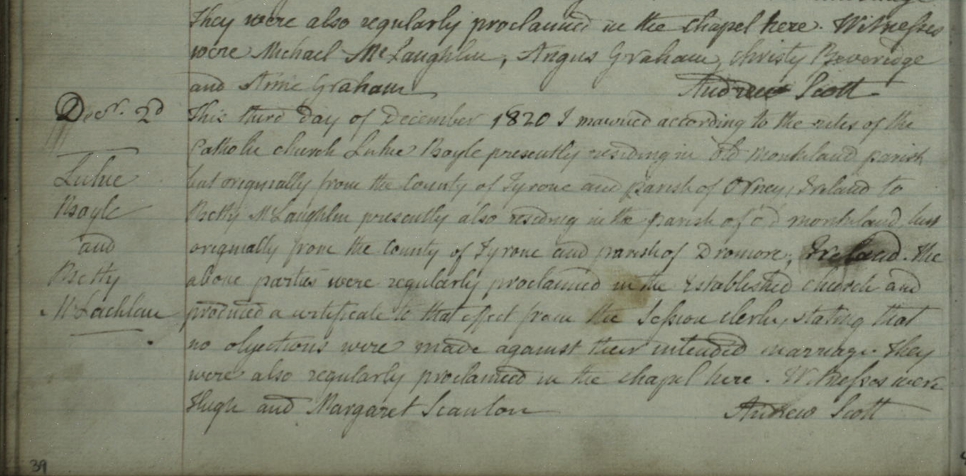 They were also regularly proclaimed in the chapel here. Witnesses
were Michael McLaughlin, Angus Graham, Christy Beveridge
and Anne Graham Andrew Scott
Decr. 2d
This third Day of December 1820 I married according to the rules of the
Catholic church Luke Boyle presently residing in Old Monkland parish
but originally from the County of Tyrone and parish of Urney, Ireland to
Betty McLaughlin presently also residing in the parish of old monkland, but
originally from the County of Tyrone and parish of Dromore, Ireland. The
above parties were regularly proclaimed in the Established church and
produced a certificate to that effect from the Session clerk, stating that
no objections were made against their intended marriage. They
were also regularly proclaimed in the chapel here. Witnesses were
Hugh and Margaret Scanlon Andrew Scott
Luke
Boyle
and
Betty
McLachlan
39